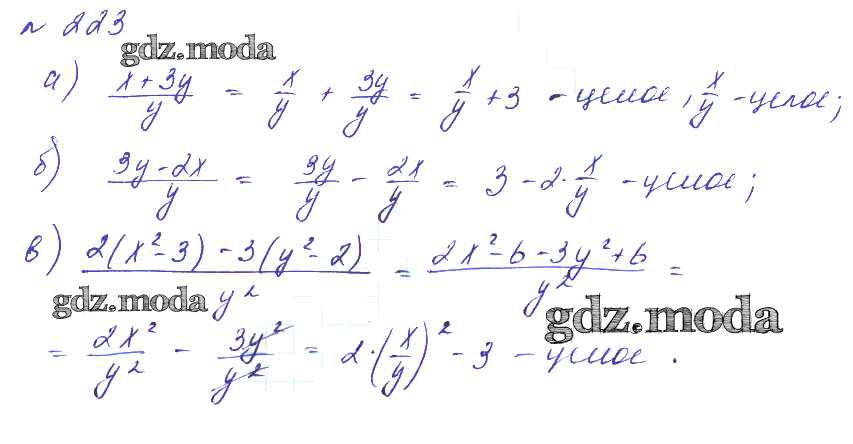 № 223
gdz.moda
а) (x+3y)/y = x/y + 3y/y = x/y + 3 - целое, x/y - целое;
б) (3y-2x)/y = 3y/y - 2x/y = 3 - 2·x/y - целое;
в) (2(x²-3)-3(y²-2))/y² = (2x²-6-3y²+6)/y² =
gdz.moda
gdz.moda
= 2x²/y² - 3y²/y² = 2·(x/y)² - 3 - целое.